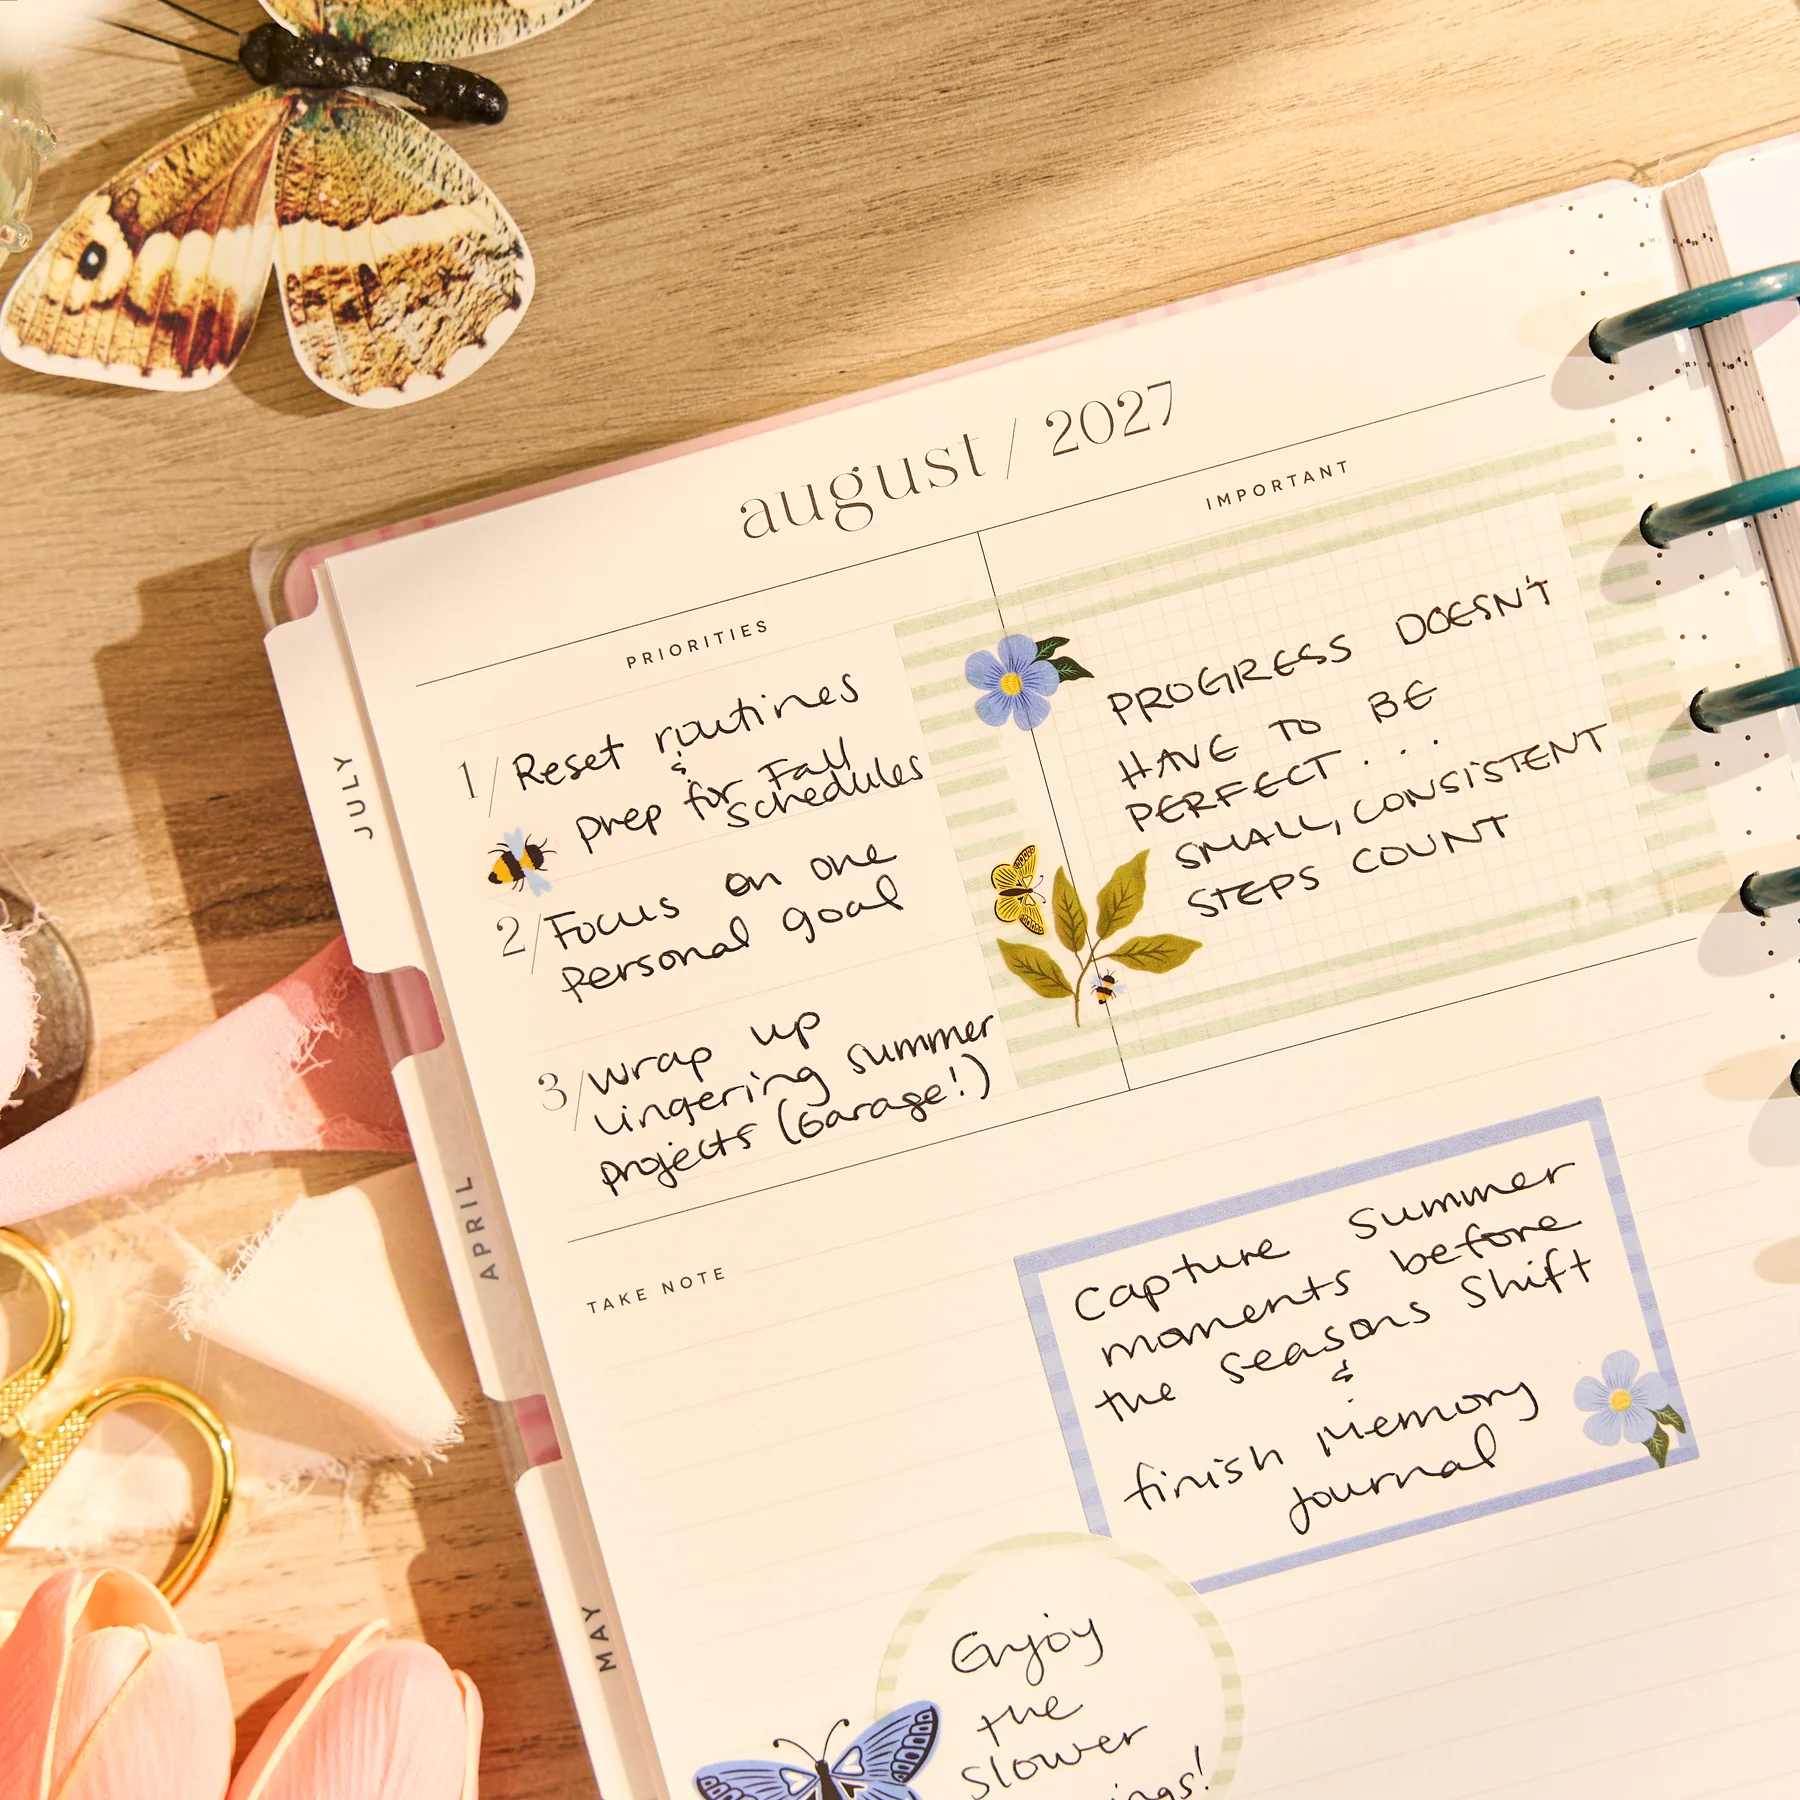 august / 2027
PRIORITIES
1/ Reset routines
&
prep for Fall
schedules
2/ Focus on one
personal goal
3/ wrap up
lingering summer
projects (Garage!)
IMPORTANT
PROGRESS DOESN'T
HAVE TO BE
PERFECT...
SMALL, CONSISTENT
STEPS COUNT
TAKE NOTE
Capture Summer
moments before
the seasons shift
&
finish Memory
Journal
Enjoy
the
slower
JULY
APRIL
MAY